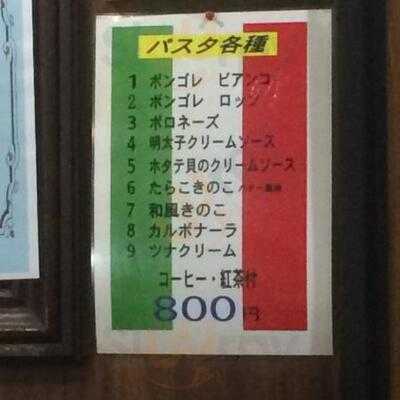 パスタ各種
1 ボンゴレ ビアンコ
2 ボンゴレ ロッソ
3 ボロネーズ
4 明太子クリームソース
5 ホタテ貝のクリームソース
6 たらこきのこ
7 和風きのこ
8 カルボナーラ
9 ツナクリーム
コーヒー・紅茶付
800円